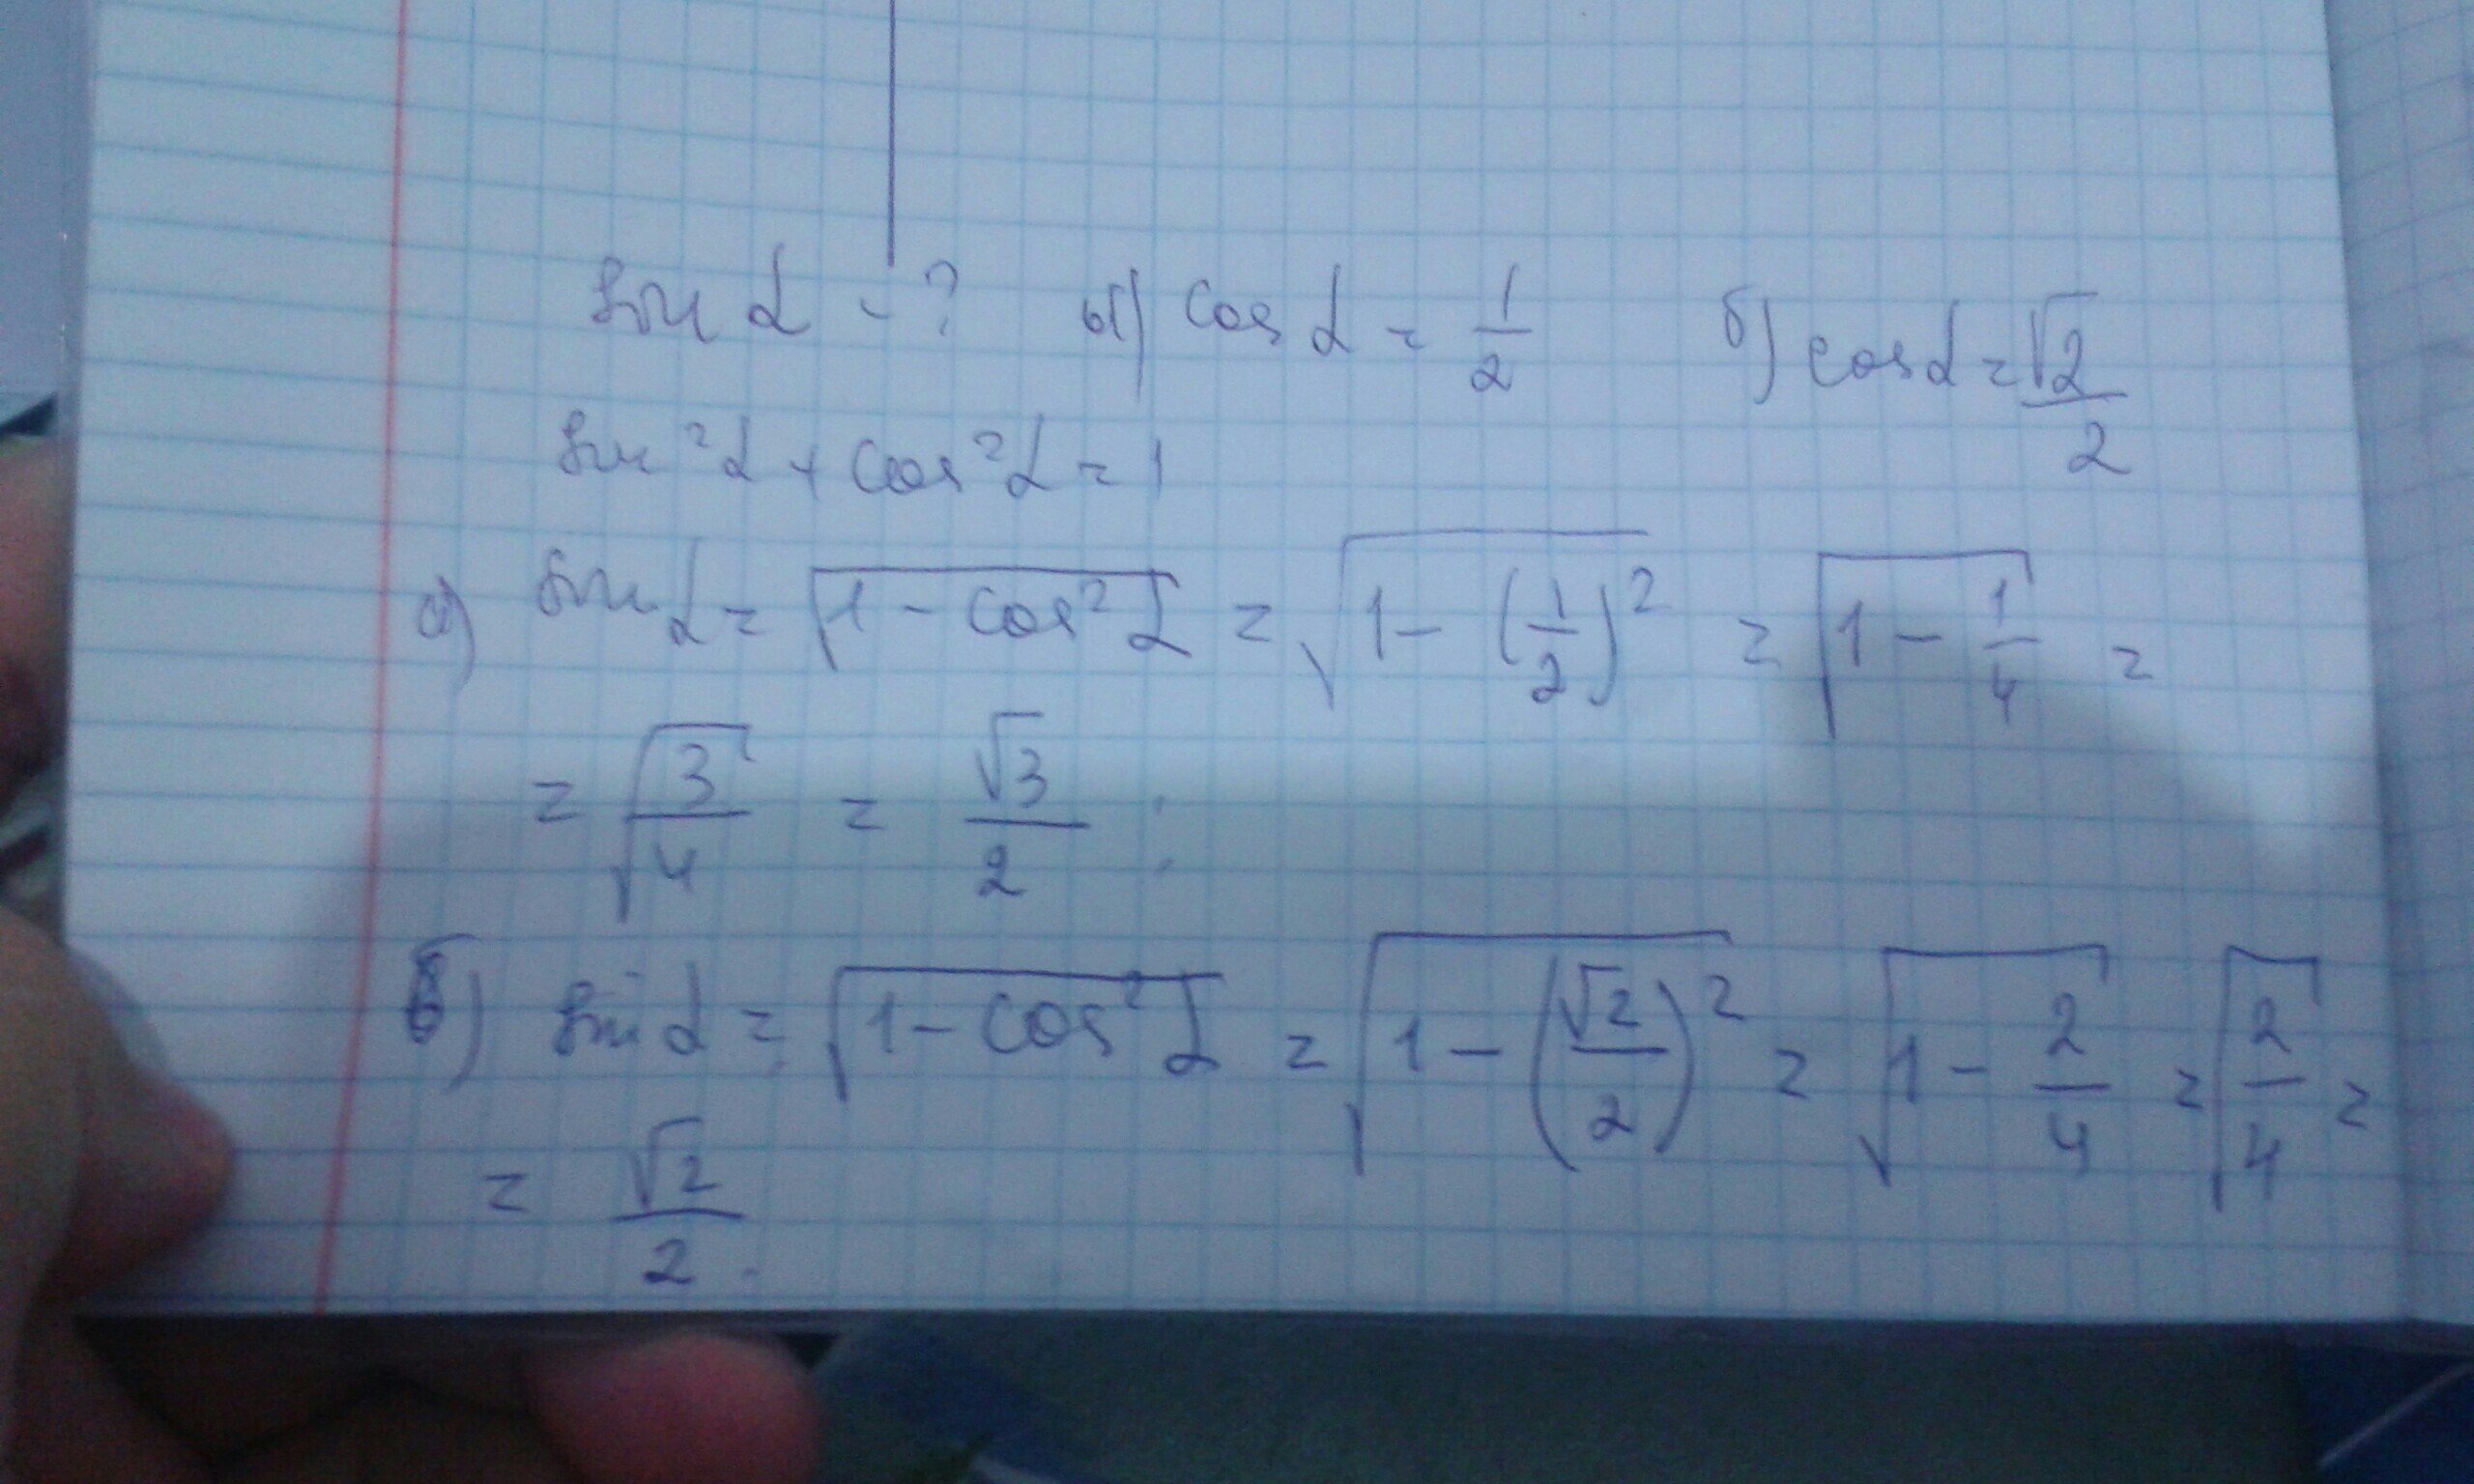 sin α - ? а) cos α = 1/2 б) cos α = √2/2
sin²α + cos²α = 1
а) sin α = √(1 - cos²α) = √(1 - (1/2)²) = √(1 - 1/4) =
= √(3/4) = √3/2 ;
б) sin α = √(1 - cos²α) = √(1 - (√2/2)²) = √(1 - 2/4) = √(2/4) =
= √2/2 .